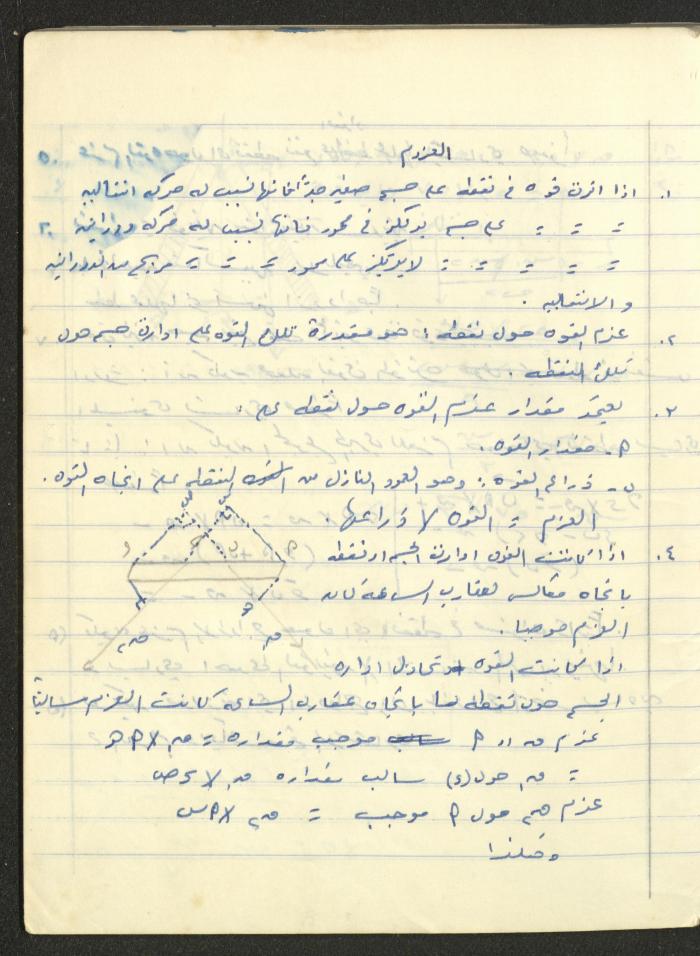 العزوم
١. اذا اثرت قوة في نقطه على جسم صغير جداً فانها تسبب له حركه انتقاليه
= = = على جسم يرتكز في محور فانها تسبب له حركه دورانيه
= = = = = لا يرتكز على محور = = = مزيج من الدورانيه
والانتقاليه .
٢. عزم القوه حول نقطه : هو مقدرة تلك القوه على ادارة جسم حول
تلك النقطه .
٣. يعتمد مقدار عزم القوه حول نقطه على :
٩- مقدار القوه .
ب- ذراع القوه : وهو العمود النازل من النقطه على اتجاه القوه .
العزم = القوه × ذراعها .
٤. اذا كانت القوه ادارة الجسم او نقطه
باتجاه معاكس لعقارب الساعة كان
العزم موجبا .
اذا كانت القوه تحاول اداره
الجسم حول نقطه ما باتجاه عقارب الساعه كانت العزم سالباً
عزم م١ ،، ٩ موجب مقداره = م١ × ٩هـ
= م١ حول (و) سالب مقداره م١ × وص
عزم م٢ حول ٩ موجب = م٢ × ٩س
وهكذا